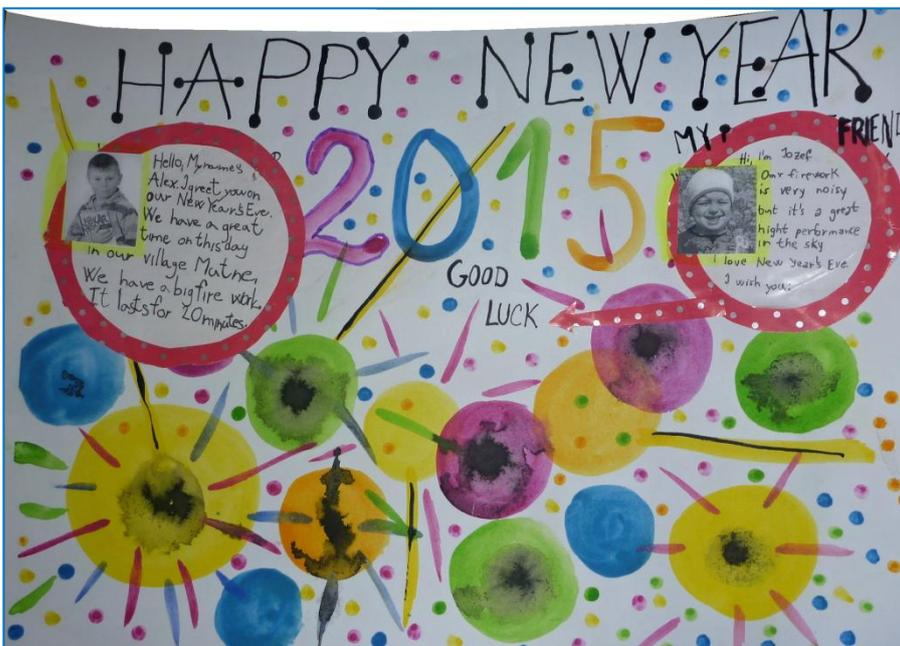 HAPPY NEW YEAR
2015
MY FRIEND
Hello, My name's
Alex. I greet you on
our New Year's Eve.
We have a great
time on this day
in our village Mutne,
We have a big fire work.
It lasts for 20 minutes.
Hi, I'm Jozef
Our firework
is very noisy
but it's a great
night performance
in the sky
I love New Year's Eve
I wish you:
GOOD
LUCK